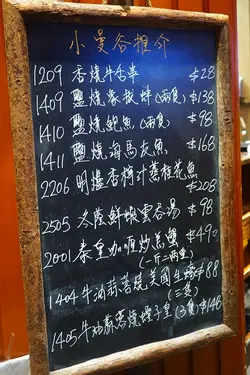 小曼谷推介
1209 香燒牛舌串 $28
1409 鹽燒象拔蚌(兩隻) $138
1410 鹽燒鮑魚(兩隻) $98
1411 鹽燒海馬友魚 $168
2206 明爐香檸汁蒸桂花魚 $208
2505 冬蔭鮮蝦雲吞湯 $98
2001 泰皇咖喱炒羔蟹 $490
(一斤二両隻)
1404 牛油蒜蓉燒美國生蠔 $88
(三隻)
1405 牛油蒜蓉燒蟶子皇(3隻) $148